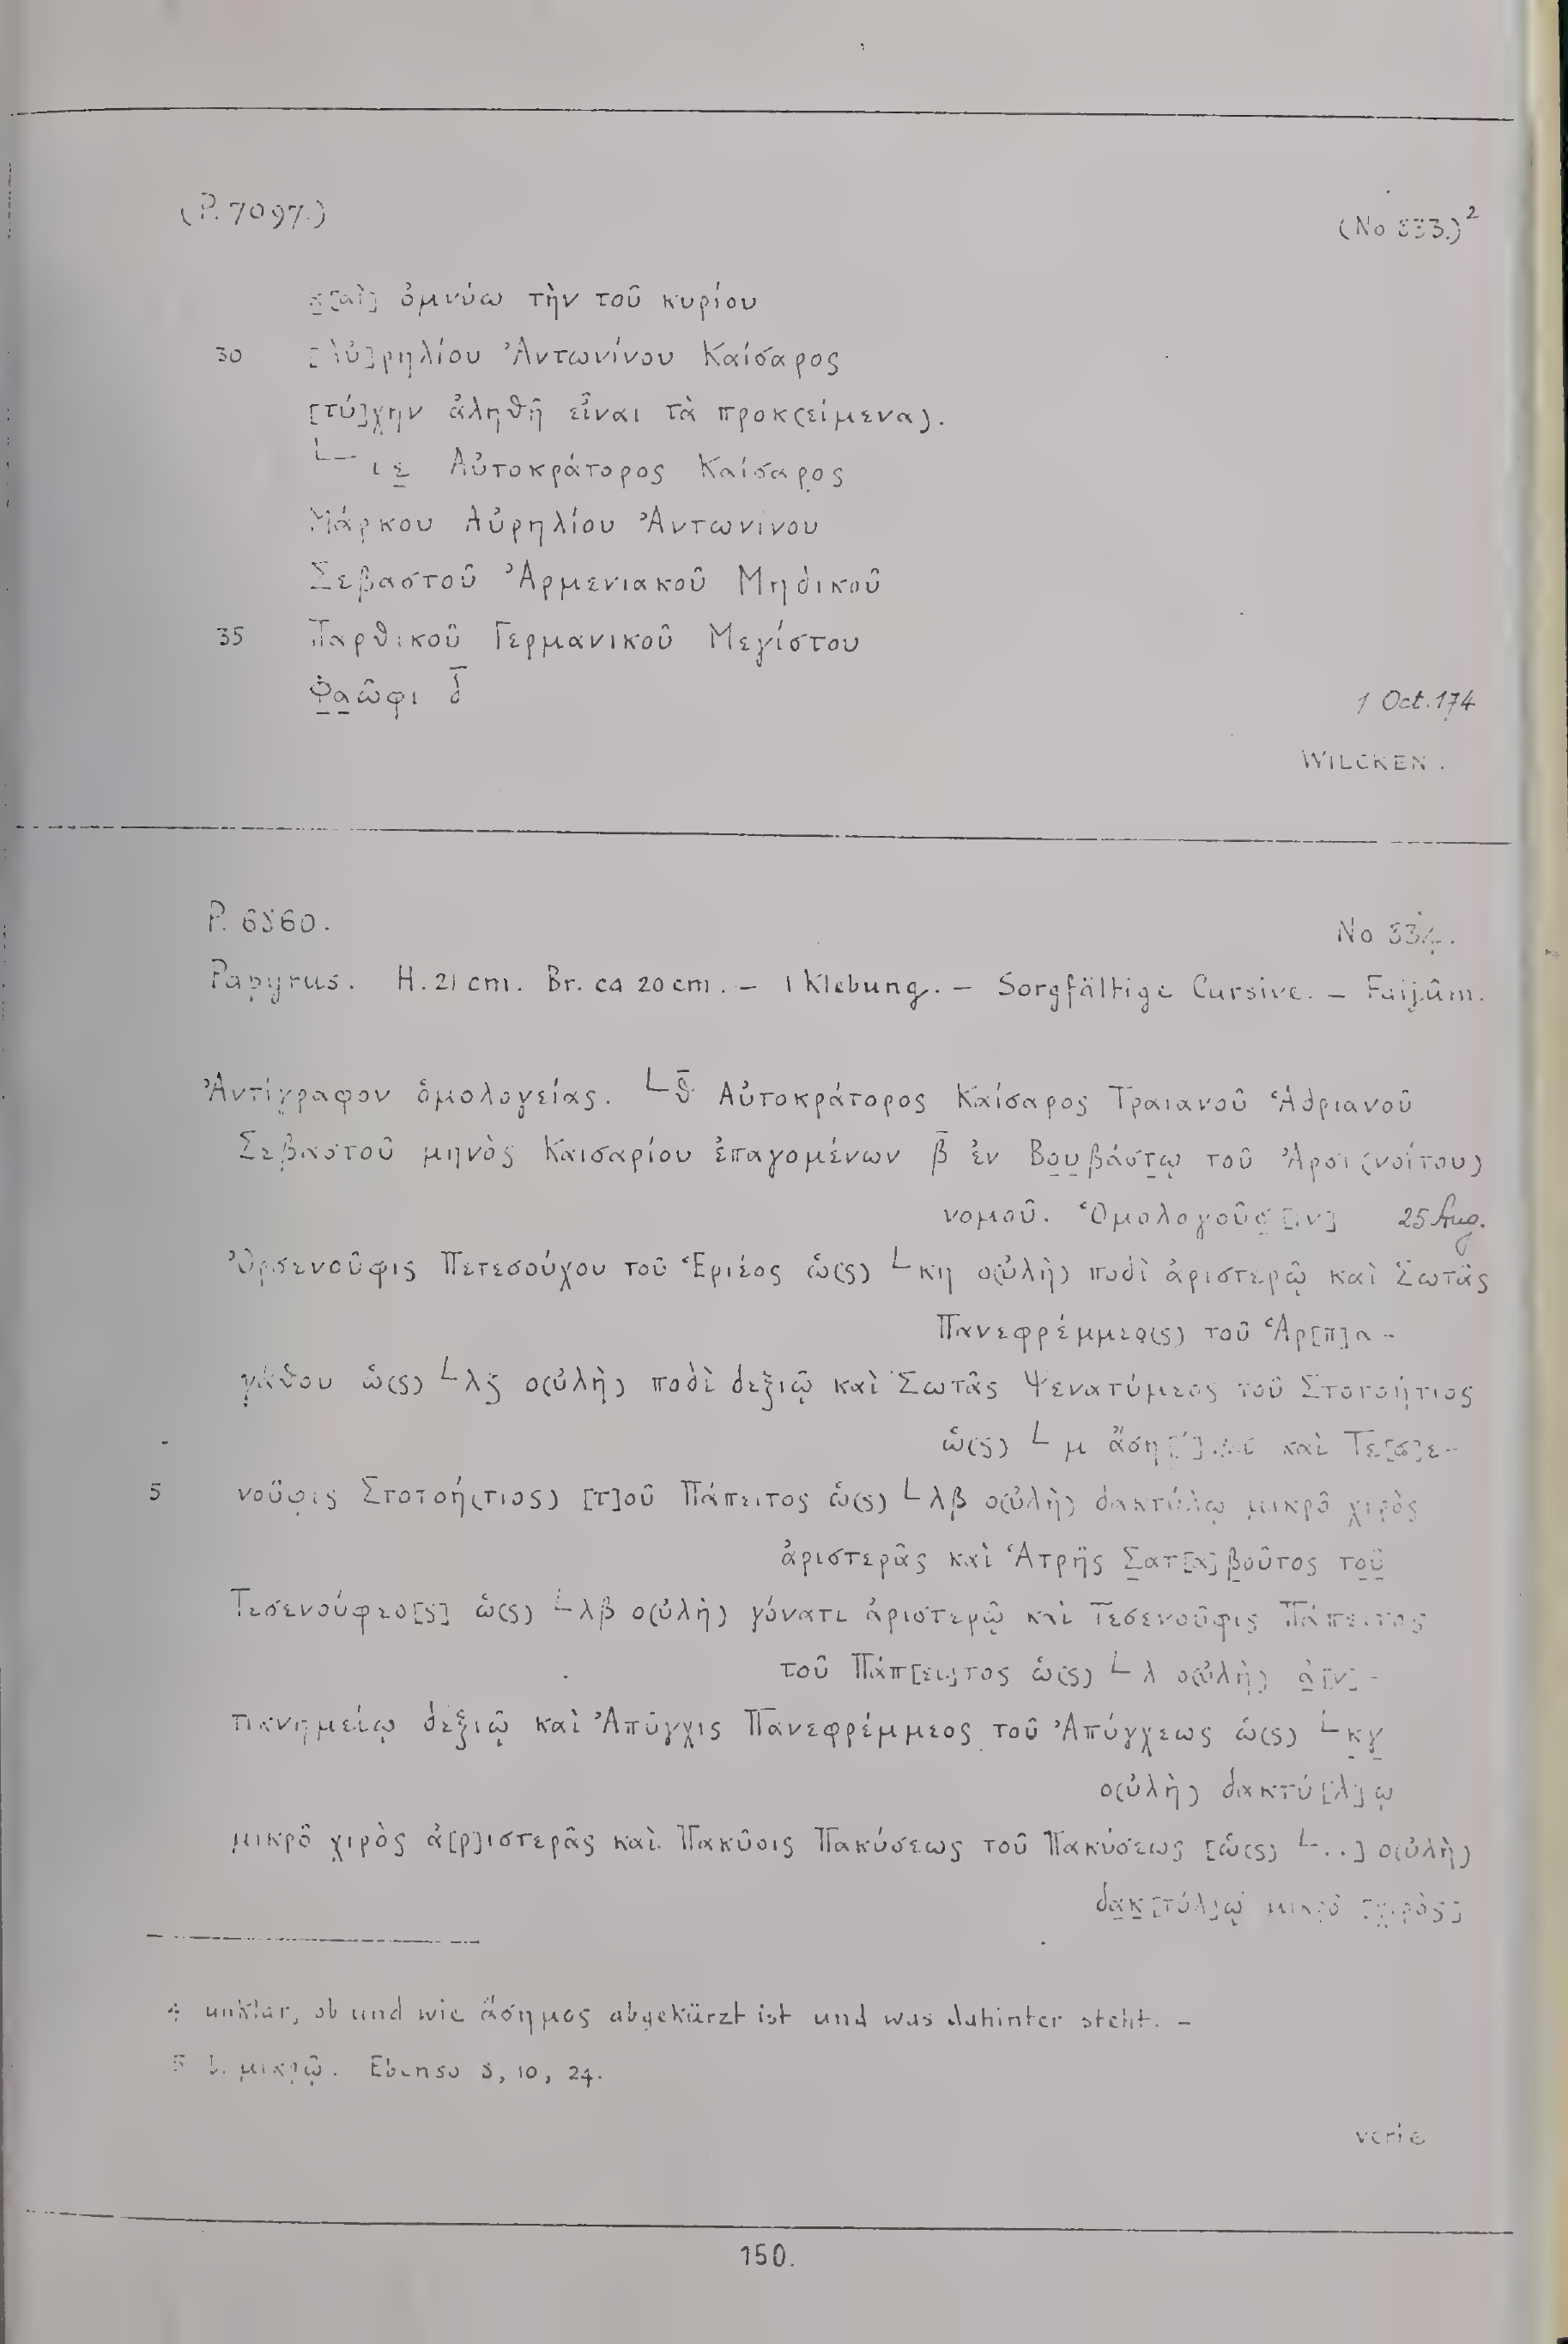 (P. 7097.) (No 833.)²
κ[αὶ] ὀμνύω τὴν τοῦ κυρίου
30 [Αὐ]ρηλίου Ἀντωνίνου Καίσαρος
[τύ]χην ἀληθῆ εἶναι τὰ προκ(είμενα).
└ ιε Αὐτοκράτορος Καίσαρος
Μάρκου Αὐρηλίου Ἀντωνίνου
Σεβαστοῦ Ἀρμενιακοῦ Μηδικοῦ
35 Παρθικοῦ Γερμανικοῦ Μεγίστου
Φαῶφι δ̄ 1 Oct. 174
WILCKEN.
P. 6860. No 834.
Papyrus. H. 21 cm. Br. ca 20 cm. – 1 Klebung. – Sorgfältige Cursive. – Faijûm.
Ἀντίγραφον ὁμολογείας. └ θ̄ Αὐτοκράτορος Καίσαρος Τραιανοῦ Ἁδριανοῦ
Σεβαστοῦ μηνὸς Καισαρίου ἐπαγομένων β̄ ἐν Βουβάστῳ τοῦ Ἀρσι(νοίτου)
νομοῦ. Ὁμολογοῦσ[ιν] 25 Aug.
Ὀρσενοῦφις Πετεσούχου τοῦ Ἑριέος ὡ(ς) └ κη ο(ὐλὴ) ποδὶ ἀριστερῷ καὶ Σωτᾶς
Πανεφρέμμεο(ς) τοῦ Ἁρ[π]α-
γάθου ὡ(ς) └ λζ ο(ὐλὴ) ποδὶ δεξιῷ καὶ Σωτᾶς Ψενατύμεος τοῦ Στοτοήτιος
ὡ(ς) └ μ ἄση καὶ Τε[σ]ε-
5 νοῦφις Στοτοή(τιος) [τ]οῦ Πάπειτος ὡ(ς) └ λβ ο(ὐλὴ) δακτύλῳ μικρô χιρὸς
ἀριστερᾶς καὶ Ἁτρῆς Σατ[α]βοῦτος τοῦ
Τεσενούφεο[ς] ὡ(ς) └ λβ ο(ὐλὴ) γόνατι ἀριστερῷ καὶ Τεσενοῦφις Πάπειτος
τοῦ Πάπ[ει]τος ὡ(ς) └ λ ο(ὐλὴ) ἀ[ν]-
τικνημείῳ δεξιῷ καὶ Ἀπῦγχις Πανεφρέμμεος τοῦ Ἀπύγχεως ὡ(ς) └ κγ
ο(ὐλὴ) δακτύ[λ]ῳ
μικρô χιρὸς ἀ[ρ]ιστερᾶς καὶ Πακῦσις Πακύσεως τοῦ Πακύσεως [ὡ(ς) └ ..] ο(ὐλὴ)
δακ[τύλ]ῳ μικρô [χιρὸς]
4 unklar, ob und wie ἄσημος abgekürzt ist und was dahinter steht. –
5 l. μικρῷ. Ebenso 8, 10, 24.
verte
150.